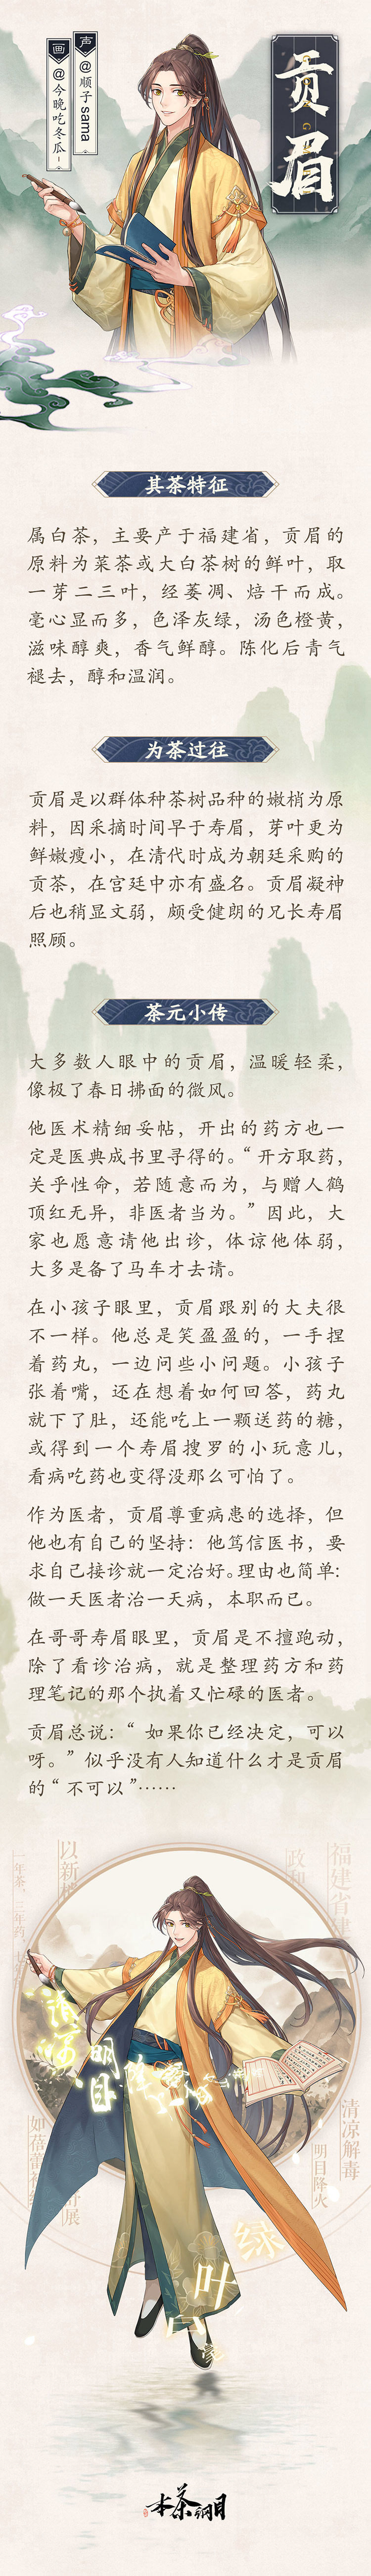 声
@顺子sama
画
@今晚吃冬瓜~
贡眉
其茶特征
属白茶，主要产于福建省，贡眉的
原料为菜茶或大白茶树的鲜叶，取
一芽二三叶，经萎凋、焙干而成。
毫心显而多，色泽灰绿，汤色橙黄，
滋味醇爽，香气鲜醇。陈化后青气
褪去，醇和温润。
为茶过往
贡眉是以群体种茶树品种的嫩梢为原
料，因采摘时间早于寿眉，芽叶更为
鲜嫩瘦小，在清代时成为朝廷采购的
贡茶，在宫廷中亦有盛名。贡眉凝神
后也稍显文弱，颇受健朗的兄长寿眉
照顾。
茶元小传
大多数人眼中的贡眉，温暖轻柔，
像极了春日拂面的微风。
他医术精细妥帖，开出的药方也一
定是医典成书里寻得的。“开方取药，
关乎性命，若随意而为，与赠人鹤
顶红无异，非医者当为。”因此，大
家也愿意请他出诊，体谅他体弱，
大多是备了马车才去请。
在小孩子眼里，贡眉跟别的大夫很
不一样。他总是笑盈盈的，一手捏
着药丸，一边问些小问题。小孩子
张着嘴，还在想着如何回答，药丸
就下了肚，还能吃上一颗送药的糖，
或得到一个寿眉搜罗的小玩意儿，
看病吃药也变得没那么可怕了。
作为医者，贡眉尊重病患的选择，但
他也有自己的坚持：他笃信医书，要
求自己接诊就一定治好。理由也简单：
做一天医者治一天病，本职而已。
在哥哥寿眉眼里，贡眉是不擅跑动，
除了看诊治病，就是整理药方和药
理笔记的那个执着又忙碌的医者。
贡眉总说：“如果你已经决定，可以
呀。”似乎没有人知道什么才是贡眉
的“不可以”……
福建省建
政和
以新
一年茶，三年药，七
清凉
明目
清凉解毒
明目降火
如蓓蕾初
舒展
绿
叶
本茶纲目